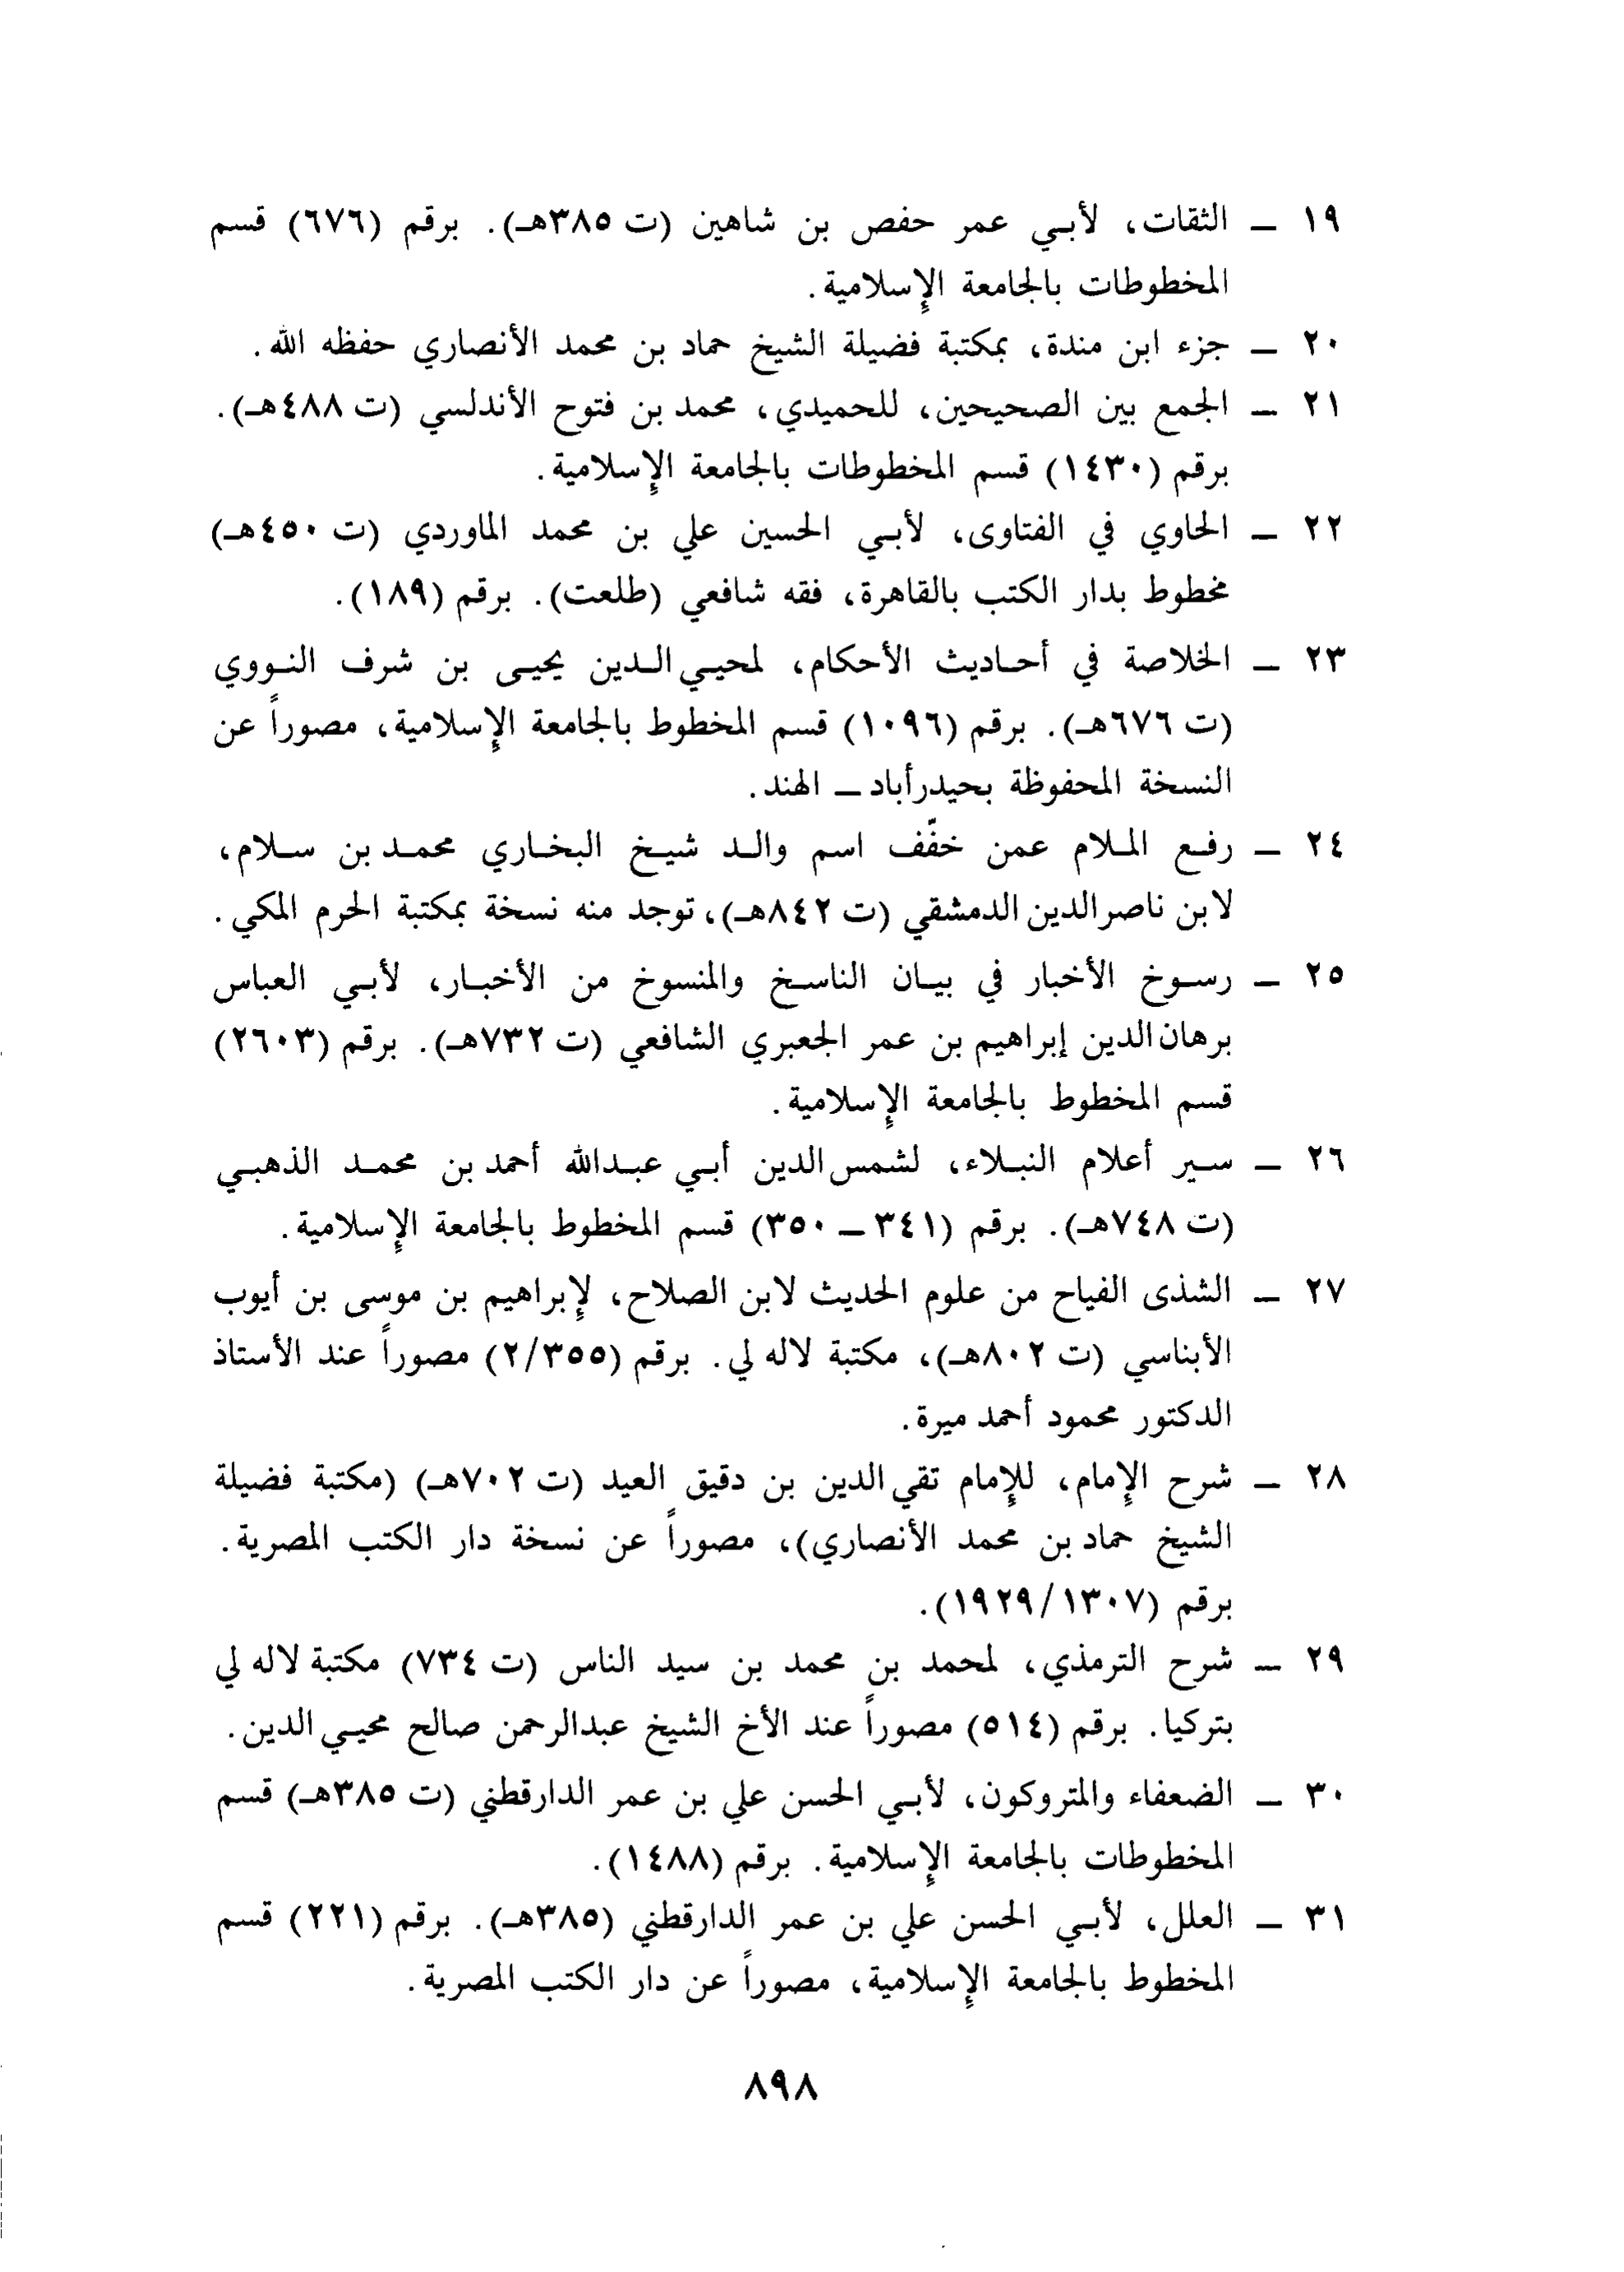 ١٩ ـ الثقات، لأبي عمر حفص بن شاهين (ت ٣٨٥هـ). برقم (٦٧٦) قسم
المخطوطات بالجامعة الإسلامية.
٢٠ ـ جزء ابن مندة، بمكتبة فضيلة الشيخ حماد بن محمد الأنصاري حفظه الله.
٢١ ـ الجمع بين الصحيحين، للحميدي، محمد بن فتوح الأندلسي (ت ٤٨٨هـ).
برقم (١٤٣٠) قسم المخطوطات بالجامعة الإسلامية.
٢٢ ـ الحاوي في الفتاوى، لأبي الحسين علي بن محمد الماوردي (ت ٤٥٠هـ)
مخطوط بدار الكتب بالقاهرة، فقه شافعي (طلعت). برقم (١٨٩).
٢٣ ـ الخلاصة في أحاديث الأحكام، لمحيي الدين يحيى بن شرف النووي
(ت ٦٧٦هـ). برقم (١٠٩٦) قسم المخطوط بالجامعة الإسلامية، مصوراً عن
النسخة المحفوظة بحيدرأباد ـ الهند.
٢٤ ـ رفع الملام عمن خفَّف اسم والد شيخ البخاري محمد بن سلام،
لابن ناصر الدين الدمشقي (ت ٨٤٢هـ)، توجد منه نسخة بمكتبة الحرم المكي.
٢٥ ـ رسوخ الأخبار في بيان الناسخ والمنسوخ من الأخبار، لأبي العباس
برهان الدين إبراهيم بن عمر الجعبري الشافعي (ت ٧٣٢هـ). برقم (٢٦٠٣)
قسم المخطوط بالجامعة الإسلامية.
٢٦ ـ سير أعلام النبلاء، لشمس الدين أبي عبدالله أحمد بن محمد الذهبي
(ت ٧٤٨هـ). برقم (٣٤١ ـ ٣٥٠) قسم المخطوط بالجامعة الإسلامية.
٢٧ ـ الشذى الفياح من علوم الحديث لابن الصلاح، لإبراهيم بن موسى بن أيوب
الأبناسي (ت ٨٠٢هـ)، مكتبة لاله لي. برقم (٢/٣٥٥) مصوراً عند الأستاذ
الدكتور محمود أحمد ميرة.
٢٨ ـ شرح الإمام، للإمام تقي الدين بن دقيق العيد (ت ٧٠٢هـ) (مكتبة فضيلة
الشيخ حماد بن محمد الأنصاري)، مصوراً عن نسخة دار الكتب المصرية.
برقم (١٩٢٩/١٣٠٧).
٢٩ ـ شرح الترمذي، لمحمد بن محمد بن سيد الناس (ت ٧٣٤) مكتبة لاله لي
بتركيا. برقم (٥١٤) مصوراً عند الأخ الشيخ عبدالرحمن صالح محيي الدين.
٣٠ ـ الضعفاء والمتروكون، لأبي الحسن علي بن عمر الدارقطني (ت ٣٨٥هـ) قسم
المخطوطات بالجامعة الإسلامية. برقم (١٤٨٨).
٣١ ـ العلل، لأبي الحسن علي بن عمر الدارقطني (٣٨٥هـ). برقم (٢٢١) قسم
المخطوط بالجامعة الإسلامية، مصوراً عن دار الكتب المصرية.
٨٩٨